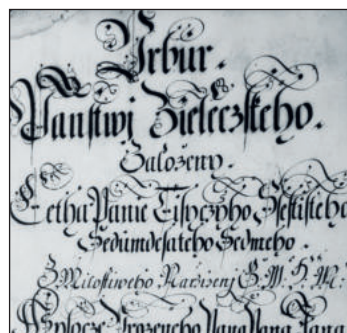 Urbur.
Panstwj Bieleczskeho.
Založeny.
Letha Panie Tisyczyho Ssestisteho
Sedumdesateho Sedmeho.
Z Milostiweho Narzizenj G. M. H. M.
Urozeneho Pana Pana